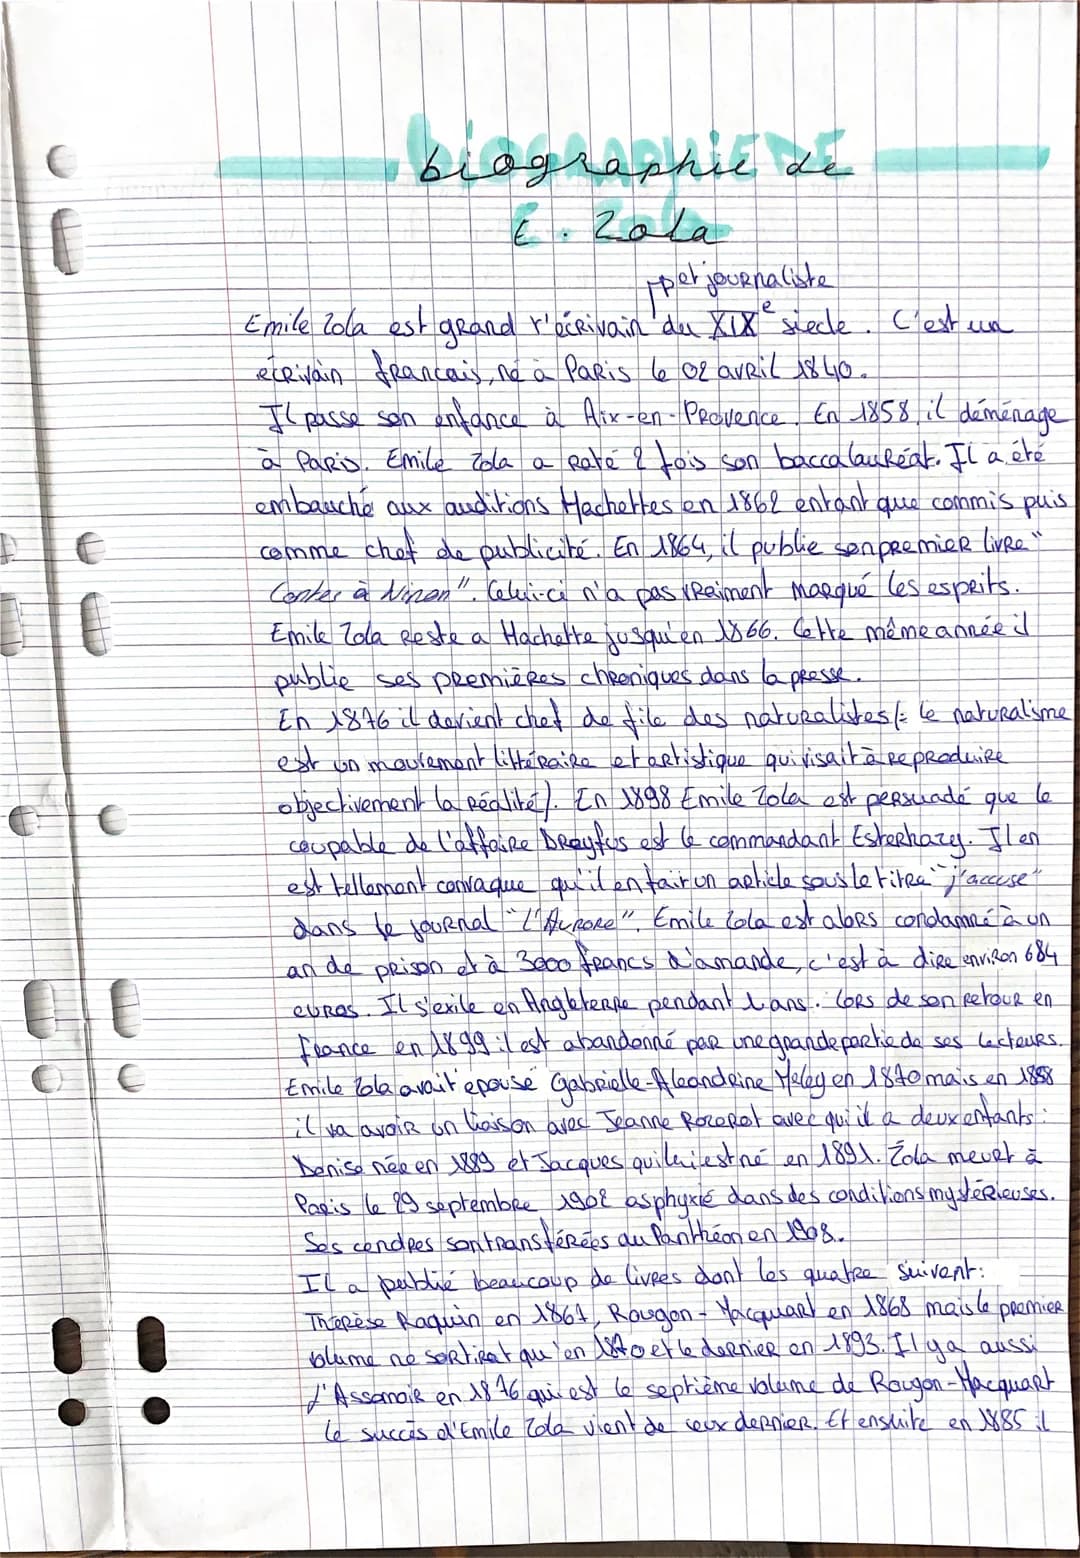 biographie de
E. Zola
et journaliste
Emile Zola est grand r'écrivain du XIXe siecle. C'est un
écrivain francais, né à Paris le 02 avril 1840.
Il passe son enfance à Aix-en-Provence. En 1858, il déménage
à Paris. Emile Zola a raté 2 fois son baccalauréat. Il a été
embauché aux auditions Hachettes en 1862 entant que commis puis
comme chef de publicité. En 1864, il publie son premier livre "
Contes à Ninon". Celui-ci n'a pas vraiment marqué les esprits.
Emile Zola reste a Hachette jusqu'en 1866. Cette même année il
publie ses premières chroniques dans la presse.
En 1876 il devient chef de file des naturalistes (= le naturalisme
est un mouvement littéraire et artistique qui visait à reproduire
objectivement la réalité). En 1898 Emile Zola est persuadé que le
coupable de l'affaire Dreyfus est le commandant Esterhazy. Il en
est tellement convaque qu'il en fait un article sous le titre "j'accuse"
dans le journal "L'Aurore". Emile Zola est alors condamné à un
an de prison et à 3000 francs d'amande, c'est à dire environ 684
euros. Il s'exile en Angleterre pendant 1 ans. Lors de son retour en
france en 1899 il est abandonné par une grande partie de ses lecteurs.
Emile Zola avait épousé Gabrielle-Aleandrine Meley en 1870 mais en 1888
il va avoir un liaison avec Jeanne Rozerot avec qui il a deux enfants :
Denise née en 1889 et Jacques qui lui est né en 1891. Zola meurt à
Paris le 29 septembre 1902 asphyxié dans des conditions mystérieuses.
Ses cendres sont transférées au Panthéon en 1908.
Il a publié beaucoup de livres dont les quatre suivant :
Thérèse Raquin en 1867, Rougon-Macquart en 1868 mais le premier
volume ne sortirat qu'en 1870 et le dernier en 1893. Il y a aussi
l'Assomoir en 1876 qui est le septième volume de Rougon-Macquart
le succès d'Emile Zola vient de ceux dernier. Et ensuite en 1885 il